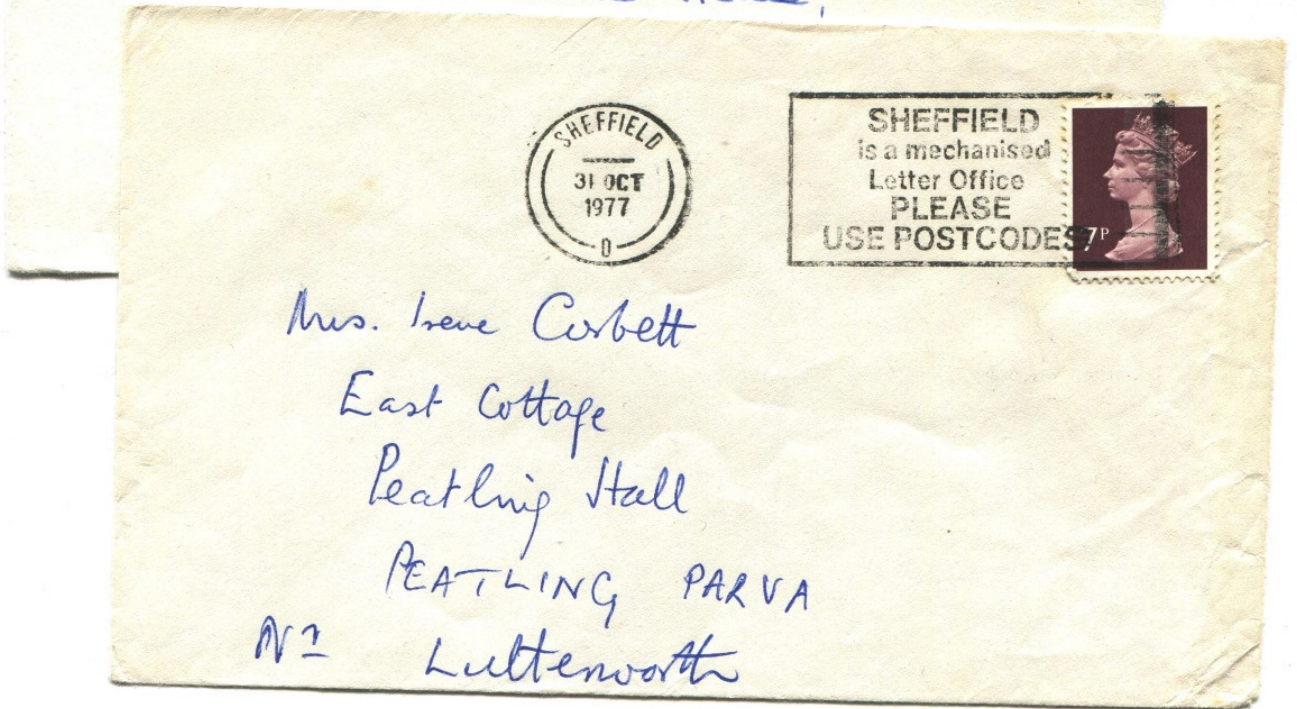 SHEFFIELD
31 OCT
1977
D
SHEFFIELD
is a mechanised
Letter Office
PLEASE
USE POSTCODES
7P
Mrs. Irene Corbett
East Cottage
Peatling Hall
PEATLING PARVA
Nr Lutterworth